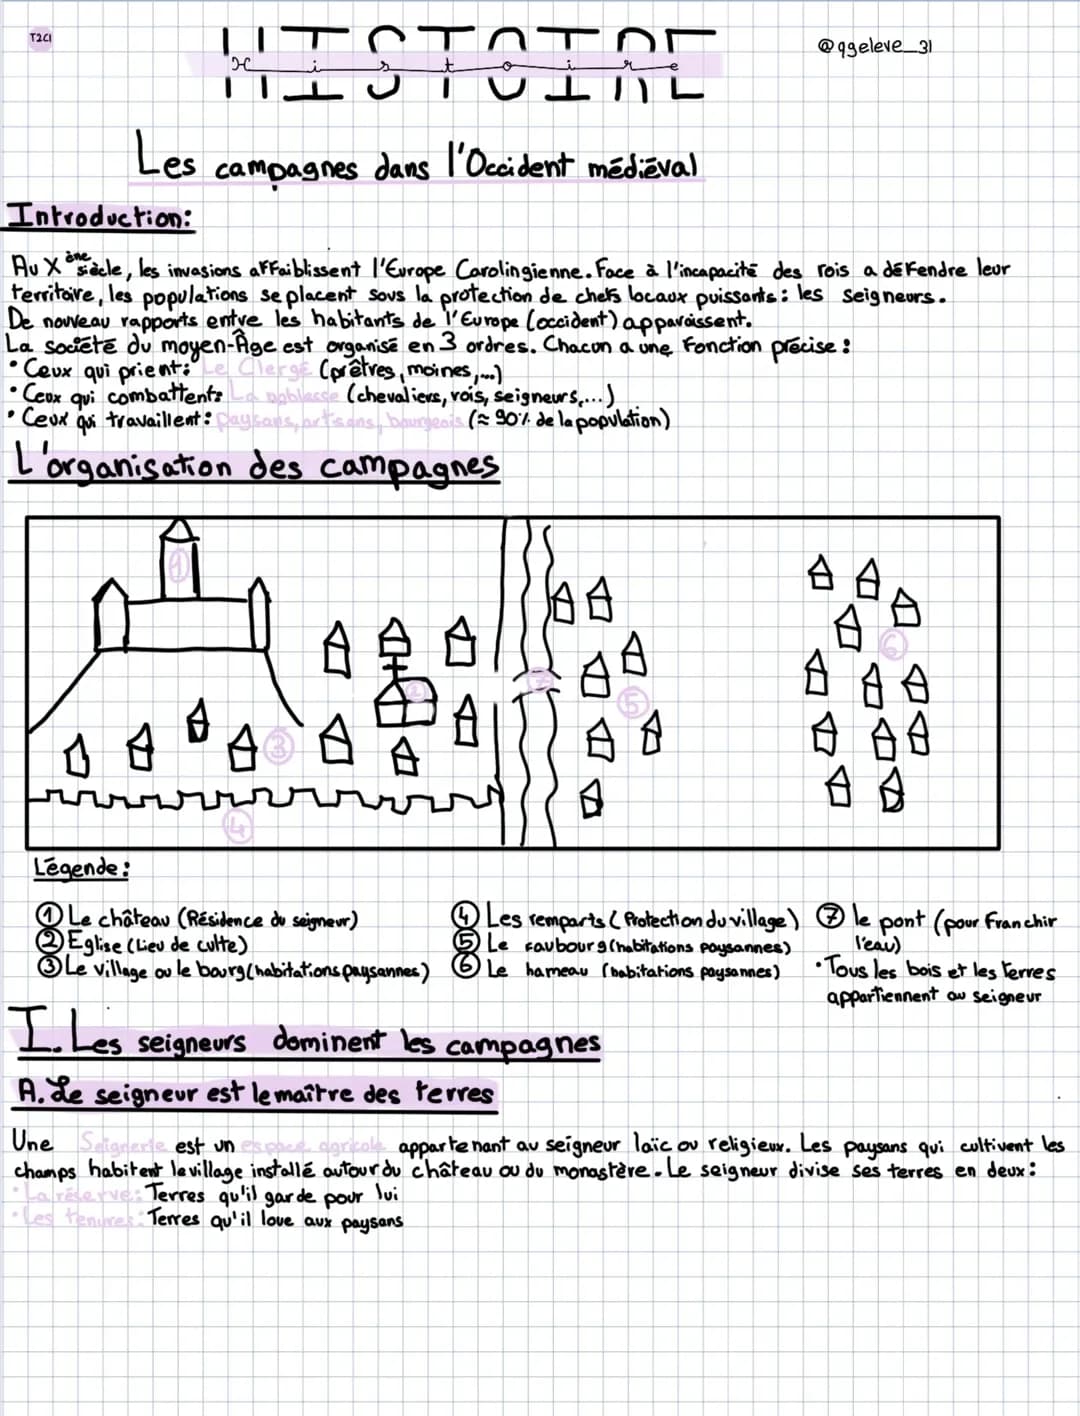 T2C1
HISTOIRE
Histoire
@qgeleve_31
Les campagnes dans l'Occident médiéval
Introduction:
Au Xème siècle, les invasions affaiblissent l'Europe Carolingienne. Face à l'incapacité des rois a défendre leur
territoire, les populations se placent sous la protection de chefs locaux puissants: les seigneurs.
De nouveau rapports entre les habitants de l'Europe (occident) apparaissent.
La société du moyen-Âge est organisé en 3 ordres. Chacun a une fonction précise:
• Ceux qui prient: Le Clergé (prêtres, moines,...)
• Ceux qui combattent: La noblesse (chevaliers, rois, seigneurs,...)
• Ceux qui travaillent: paysans, artisans, bourgeois (≈ 90% de la population)
L'organisation des campagnes
1
2
3
4
5
6
7
Légende:
① Le château (Résidence du seigneur)
② Eglise (Lieu de culte)
③ Le village ou le bourg (habitations paysannes)
④ Les remparts (Protection du village)
⑤ Le faubourg (habitations paysannes)
⑥ Le hameau (habitations paysannes)
⑦ le pont (pour franchir
l'eau)
• Tous les bois et les terres
appartiennent au seigneur
I. Les seigneurs dominent les campagnes
A. Le seigneur est le maître des terres
Une Seignerie est un espace agricole appartenant au seigneur laïc ou religieux. Les paysans qui cultivent les
champs habitent le village installé autour du château ou du monastère. Le seigneur divise ses terres en deux:
• La réserve: Terres qu'il garde pour lui
• Les tenures: Terres qu'il loue aux paysans